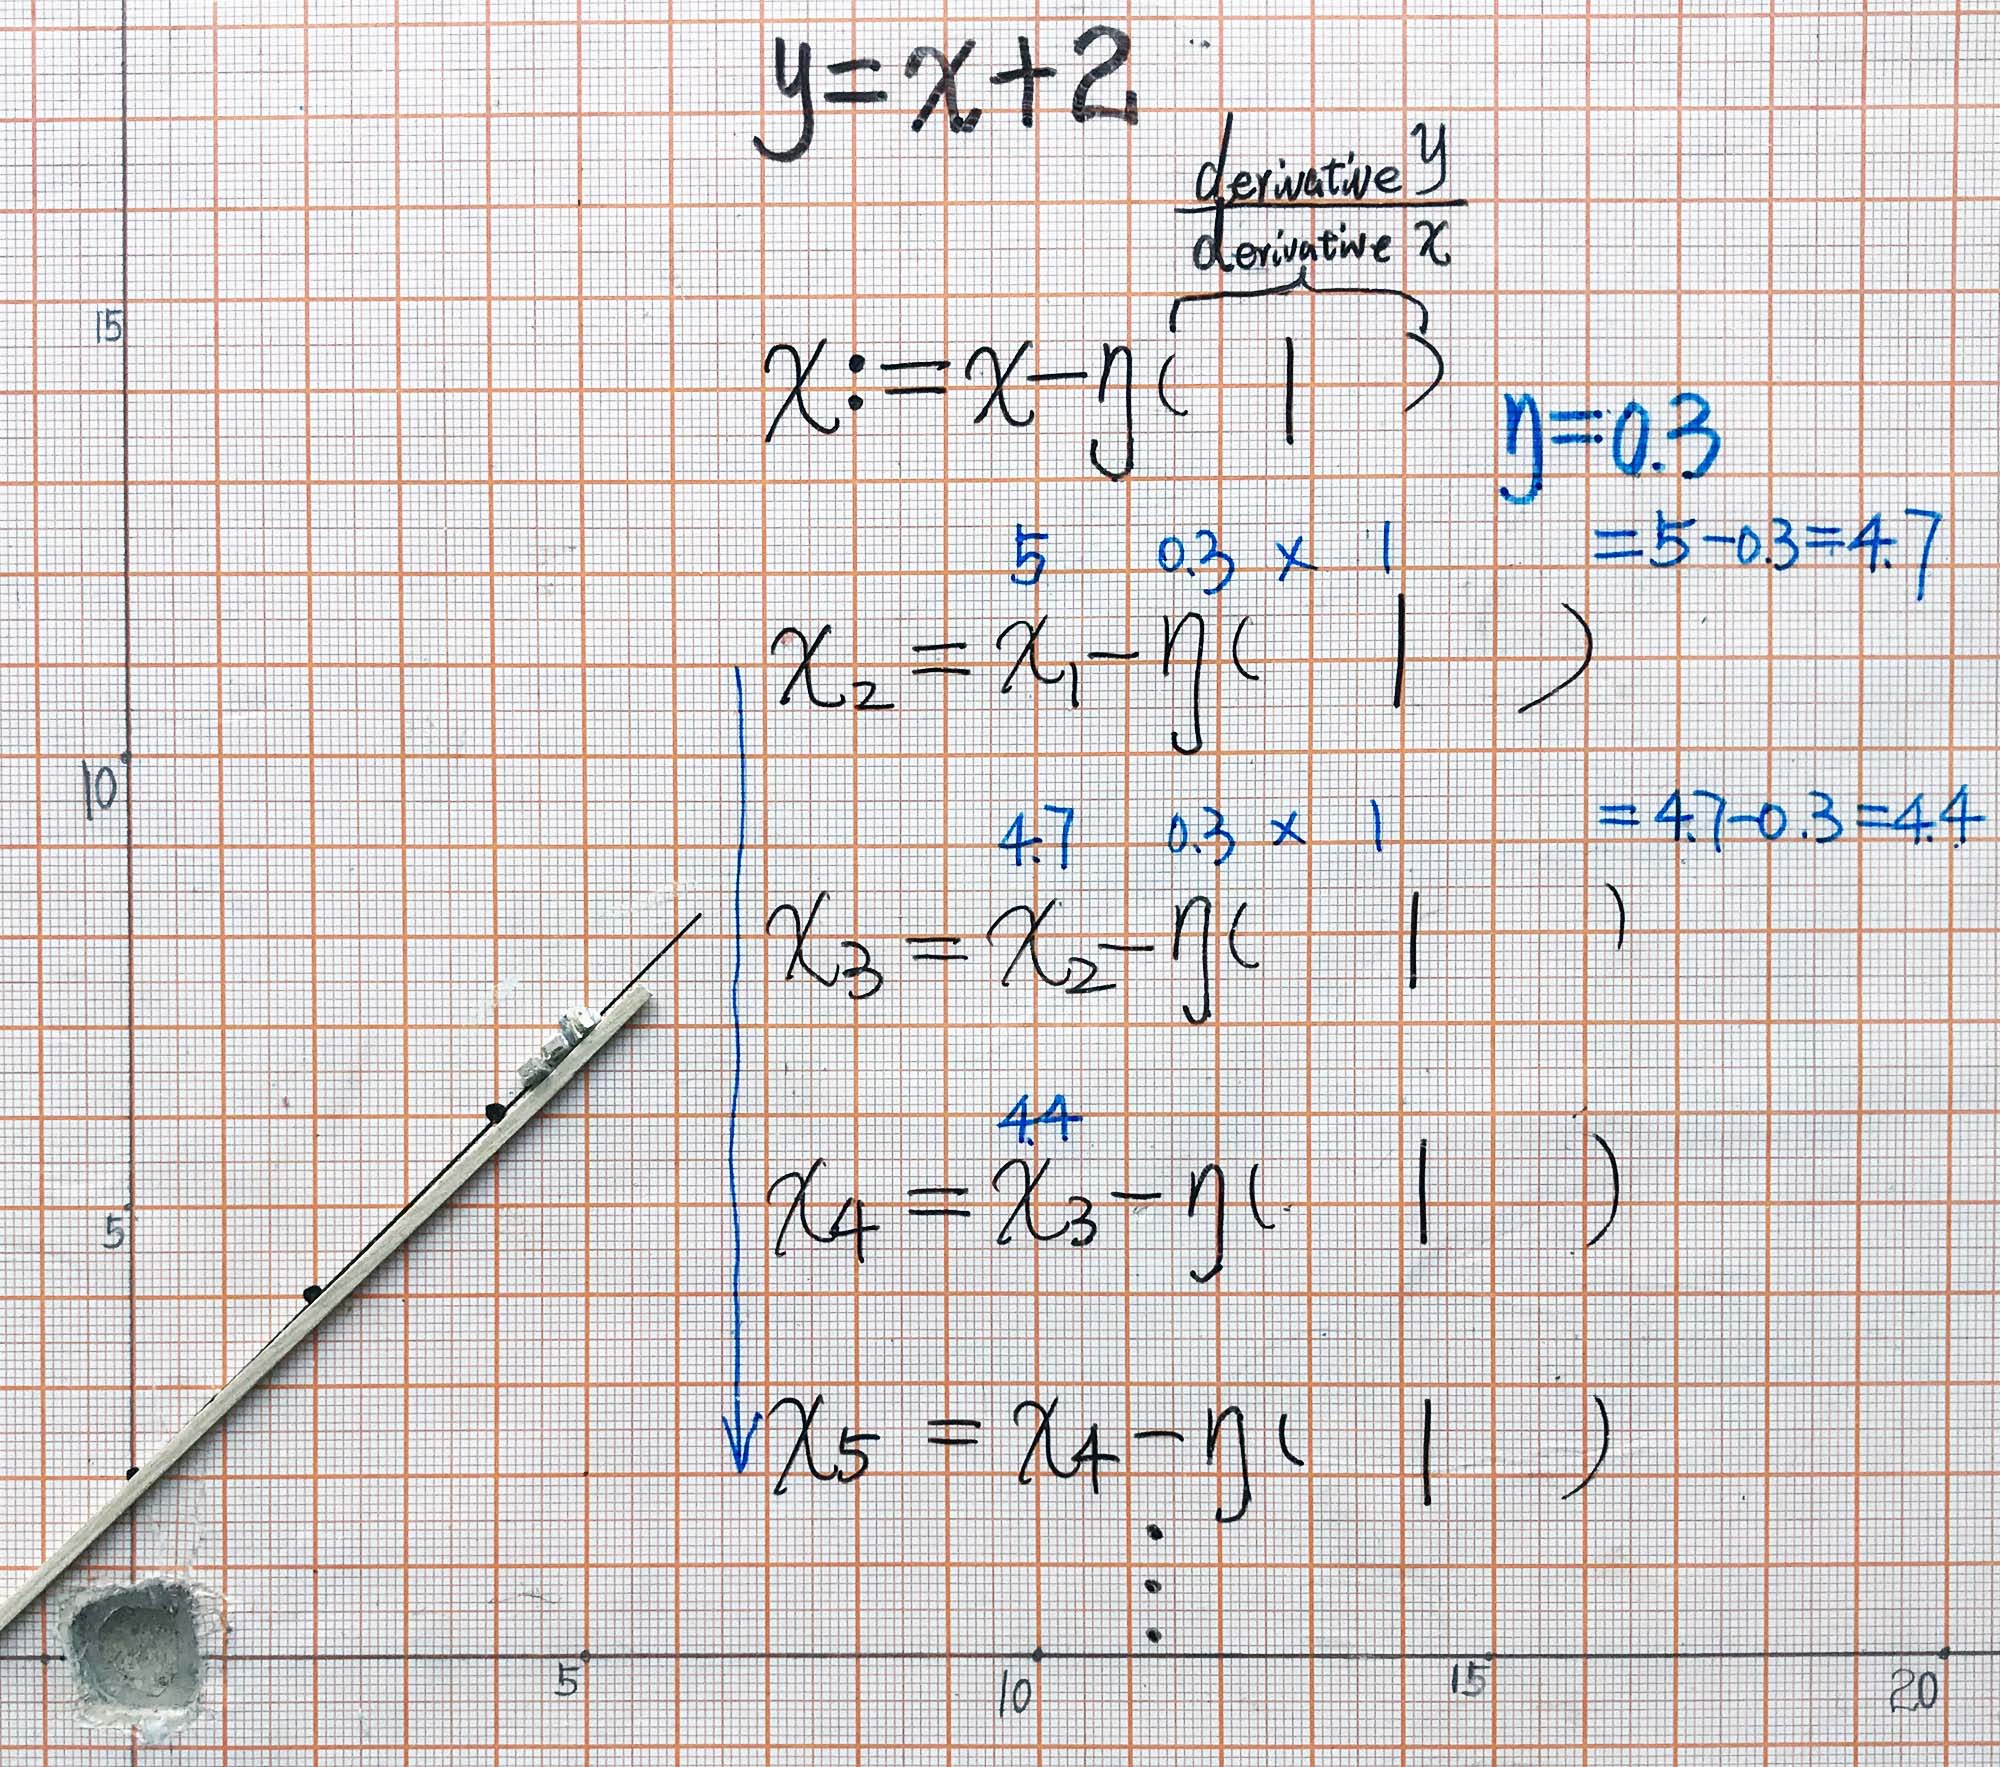 y=x+2
derivative y
derivative x
15
x:=x-η( 1 )
η=0.3
5 0.3 x 1 =5-0.3=4.7
x₂ = x₁-η( 1 )
10
4.7 0.3 x 1 =4.7-0.3=4.4
x₃ = x₂-η( 1 )
4.4
x₄ = x₃-η( 1 )
5
x₅ = x₄-η( 1 )
5 10 15 20